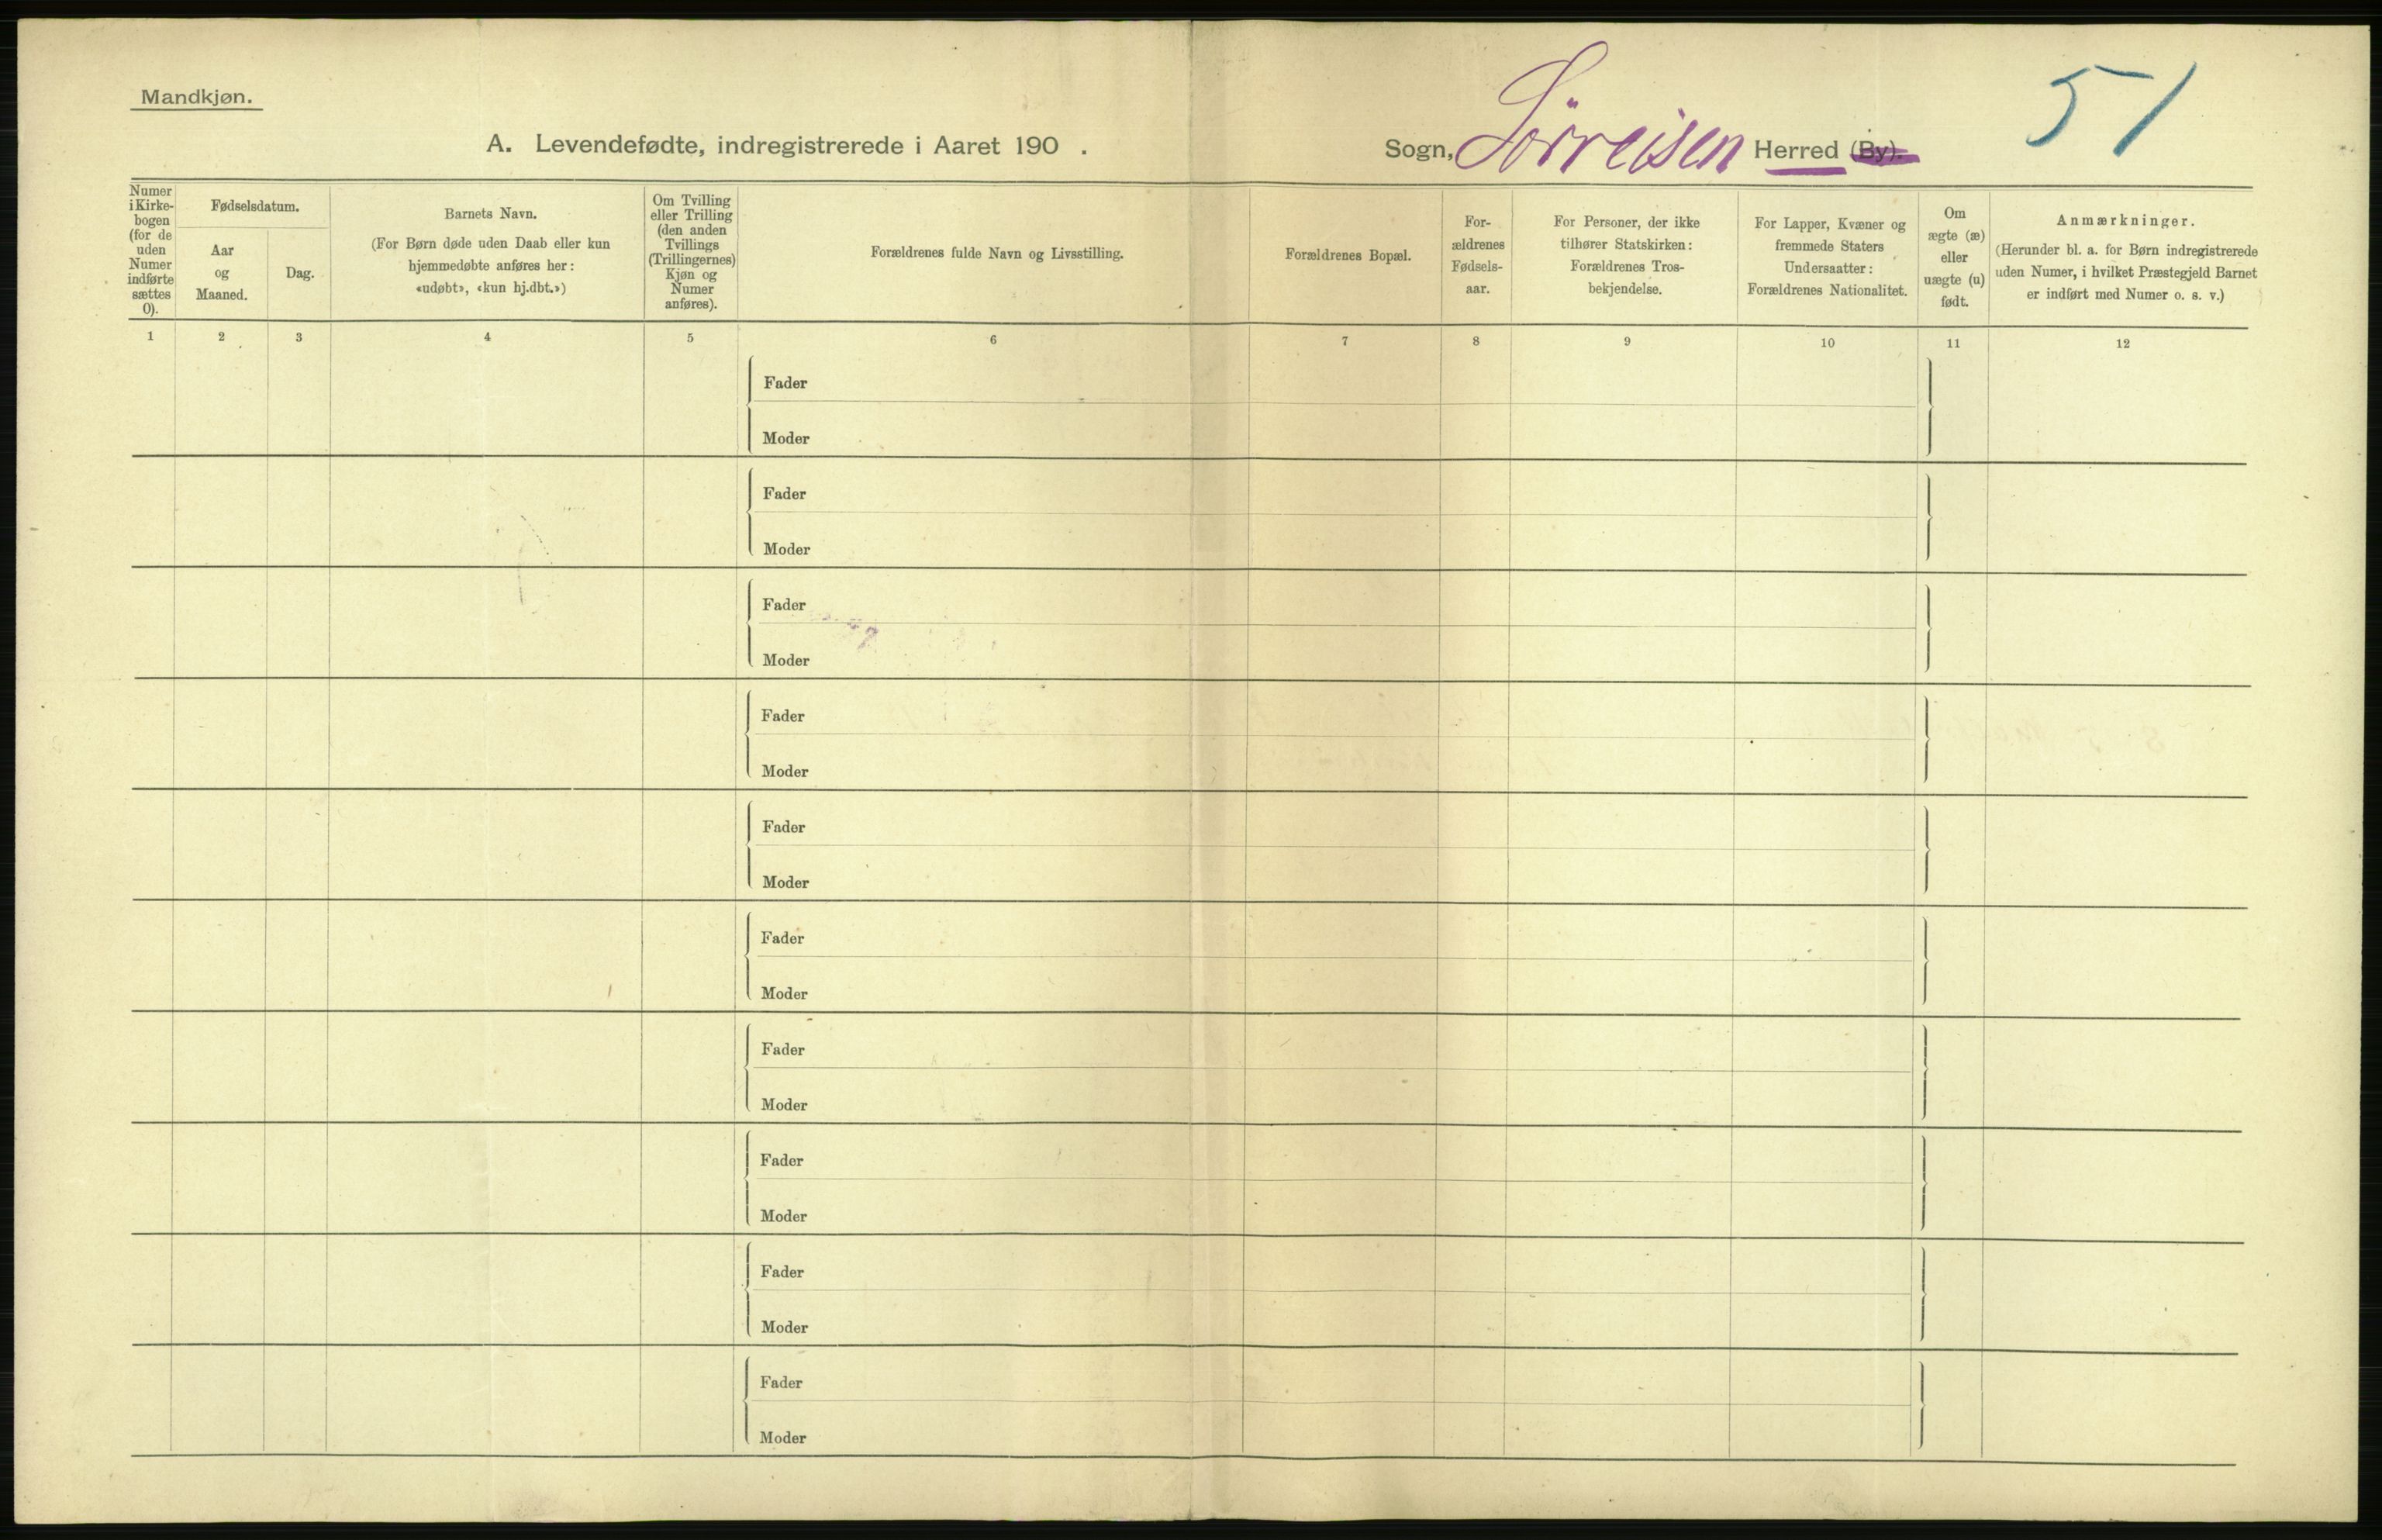 Mandkjøn.
A. Levendefødte, indregistrerede i Aaret 190 .
Sogn, Sörreisen Herred (By).
51
Numer
i Kirke-
bogen
(for de
uden
Numer
indførte
sættes
0).
Fødselsdatum.
Aar
og
Maaned.
Dag.
Barnets Navn.
(For Børn døde uden Daab eller kun
hjemmedøbte anføres her:
«udøbt», «kun hj.dbt.»)
Om Tvilling
eller Trilling
(den anden
Tvillings
(Trillingernes)
Kjøn og
Numer
anføres).
Forældrenes fulde Navn og Livsstilling.
Forældrenes Bopæl.
For-
ældrenes
Fødsels-
aar.
For Personer, der ikke
tilhører Statskirken:
Forældrenes Tros-
bekjendelse.
For Lapper, Kvæner og
fremmede Staters
Undersaatter:
Forældrenes Nationalitet.
Om
ægte (æ)
eller
uægte (u)
født.
Anmærkninger.
(Herunder bl. a. for Børn indregistrerede
uden Numer, i hvilket Præstegjeld Barnet
er indført med Numer o. s. v.)
1 2 3 4 5 6 7 8 9 10 11 12
Fader
Moder
Fader
Moder
Fader
Moder
Fader
Moder
Fader
Moder
Fader
Moder
Fader
Moder
Fader
Moder
Fader
Moder
Fader
Moder